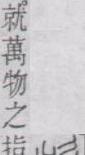 就萬物之指